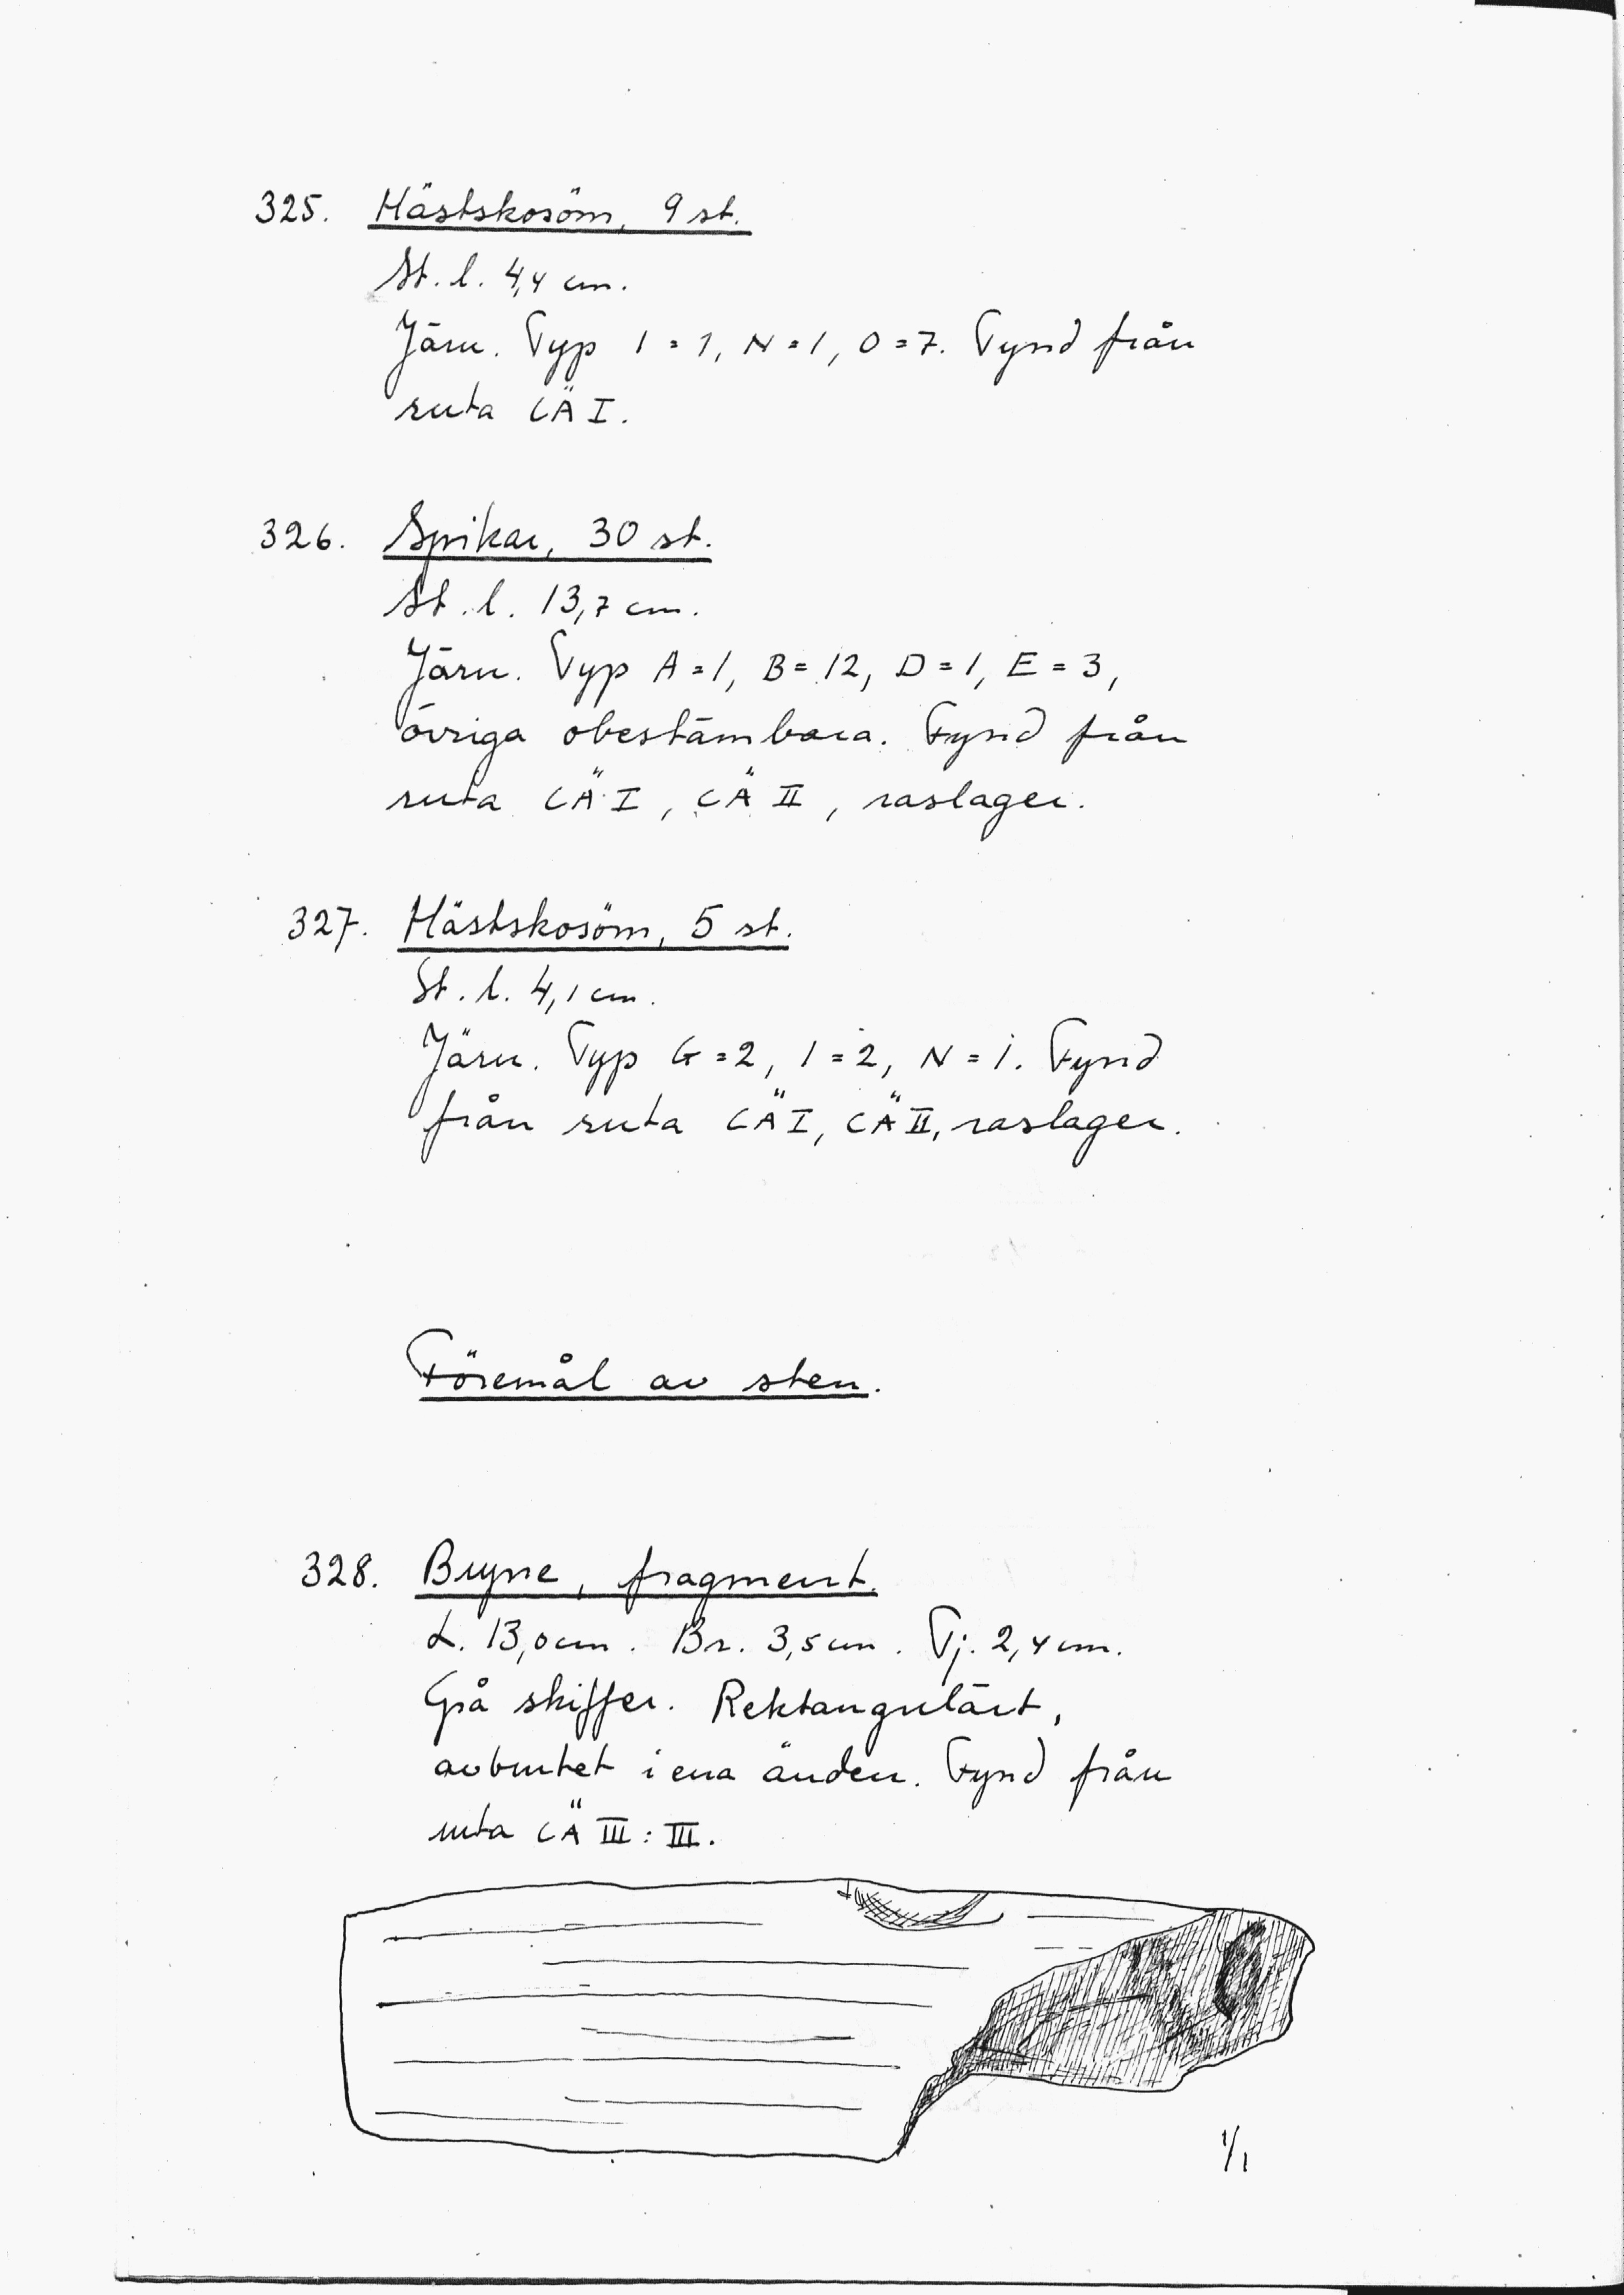 325. Hästskosöm, 9 st.
St. l. 4,4 cm.
Järn. Typ I = 1, N = 1, O = 7. Fynd från
ruta CÄ I.
326. Spikar, 30 st.
St. l. 13,7 cm.
Järn. Typ A = 1, B = 12, D = 1, E = 3,
övriga obestämbara. Fynd från
ruta CÄ I, CÄ II, raslager.
327. Hästskosöm, 5 st.
St. l. 4,1 cm.
Järn. Typ G = 2, I = 2, N = 1. Fynd
från ruta CÄ I, CÄ II, raslager.
Föremål av sten.
328. Bryne, fragment.
L. 13,0 cm. Br. 3,5 cm. Tj. 2,4 cm.
Grå skiffer. Rektangulärt,
avbrutet i ena änden. Fynd från
ruta CÄ III : III.
1/1